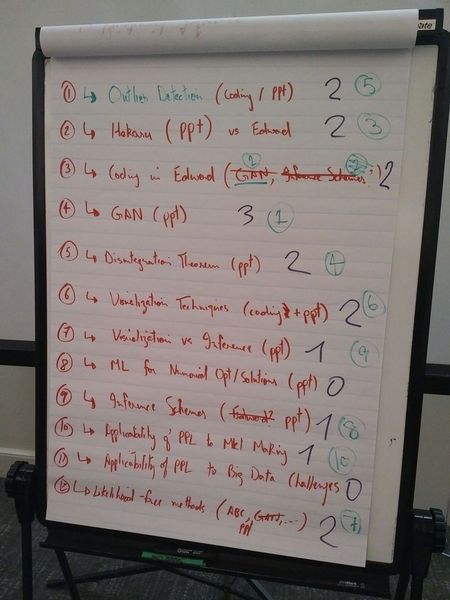 ① ↳ Outlier Detection (coding / ppt) 2 ⑤
② ↳ Hakaru (ppt) vs Edward 2 ③
③ ↳ Coding in Edward (GAN, Inference Schemes) 2
④ ↳ GAN (ppt) 3 ①
⑤ ↳ Disintegration Theorem (ppt) 2 ④
⑥ ↳ Visualization Techniques (coding + ppt) 2 ⑥
⑦ ↳ Visualization vs Inference (ppt) 1 ⑨
⑧ ↳ ML for Numerical Opt/Solutions (ppt) 0
⑨ ↳ Inference Schemes (ppt) 1 ⑧
⑩ ↳ Applicability of PPL to Making 1 ⑩
⑪ ↳ Applicability of PPL to Big Data Challenges 0
⑫ ↳ Likelihood-free methods (ABC, GAN, ...) 2 ⑦
ppt